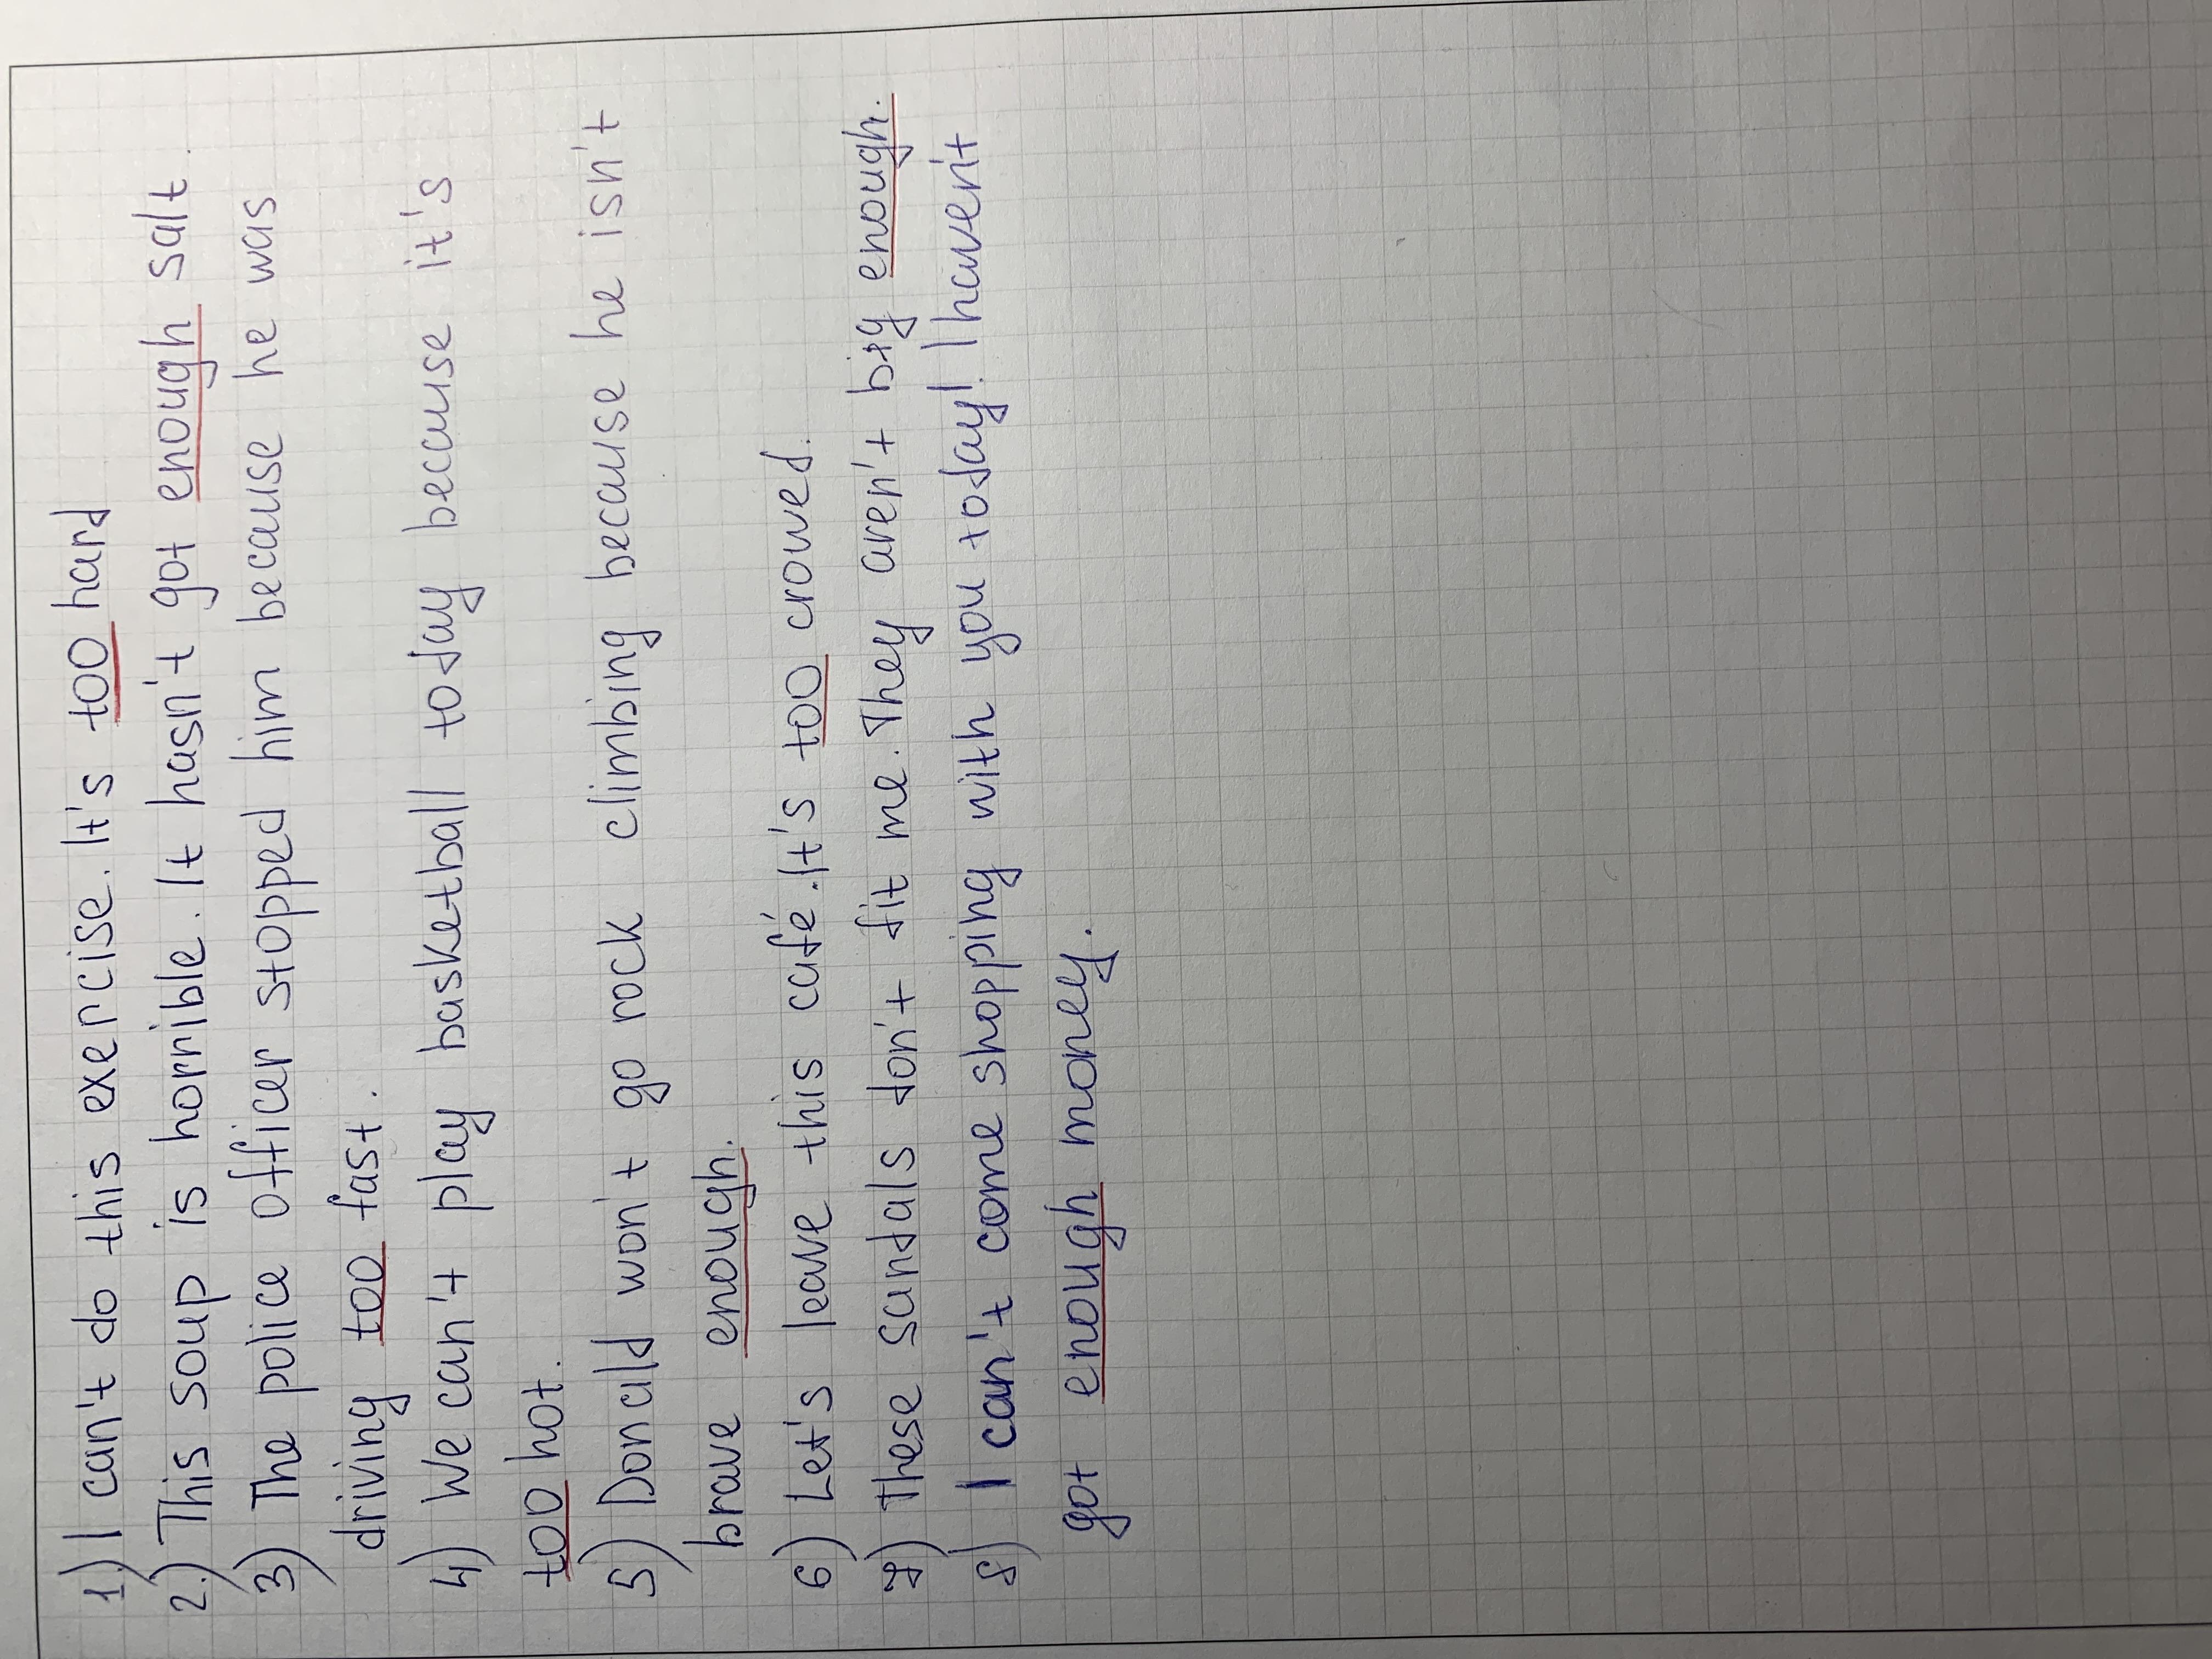 1.) I can't do this exercise. It's too hard
2.) This soup is horrible. It hasn't got enough salt.
3) The police officer stopped him because he was
driving too fast.
4) We can't play basketball today because it's
too hot.
5) Donald won't go rock climbing because he isn't
brave enough.
6) Let's leave this café. It's too crowed.
7) These sandals don't fit me. They aren't big enough.
8) I can't come shopping with you today! I haven't
got enough money.